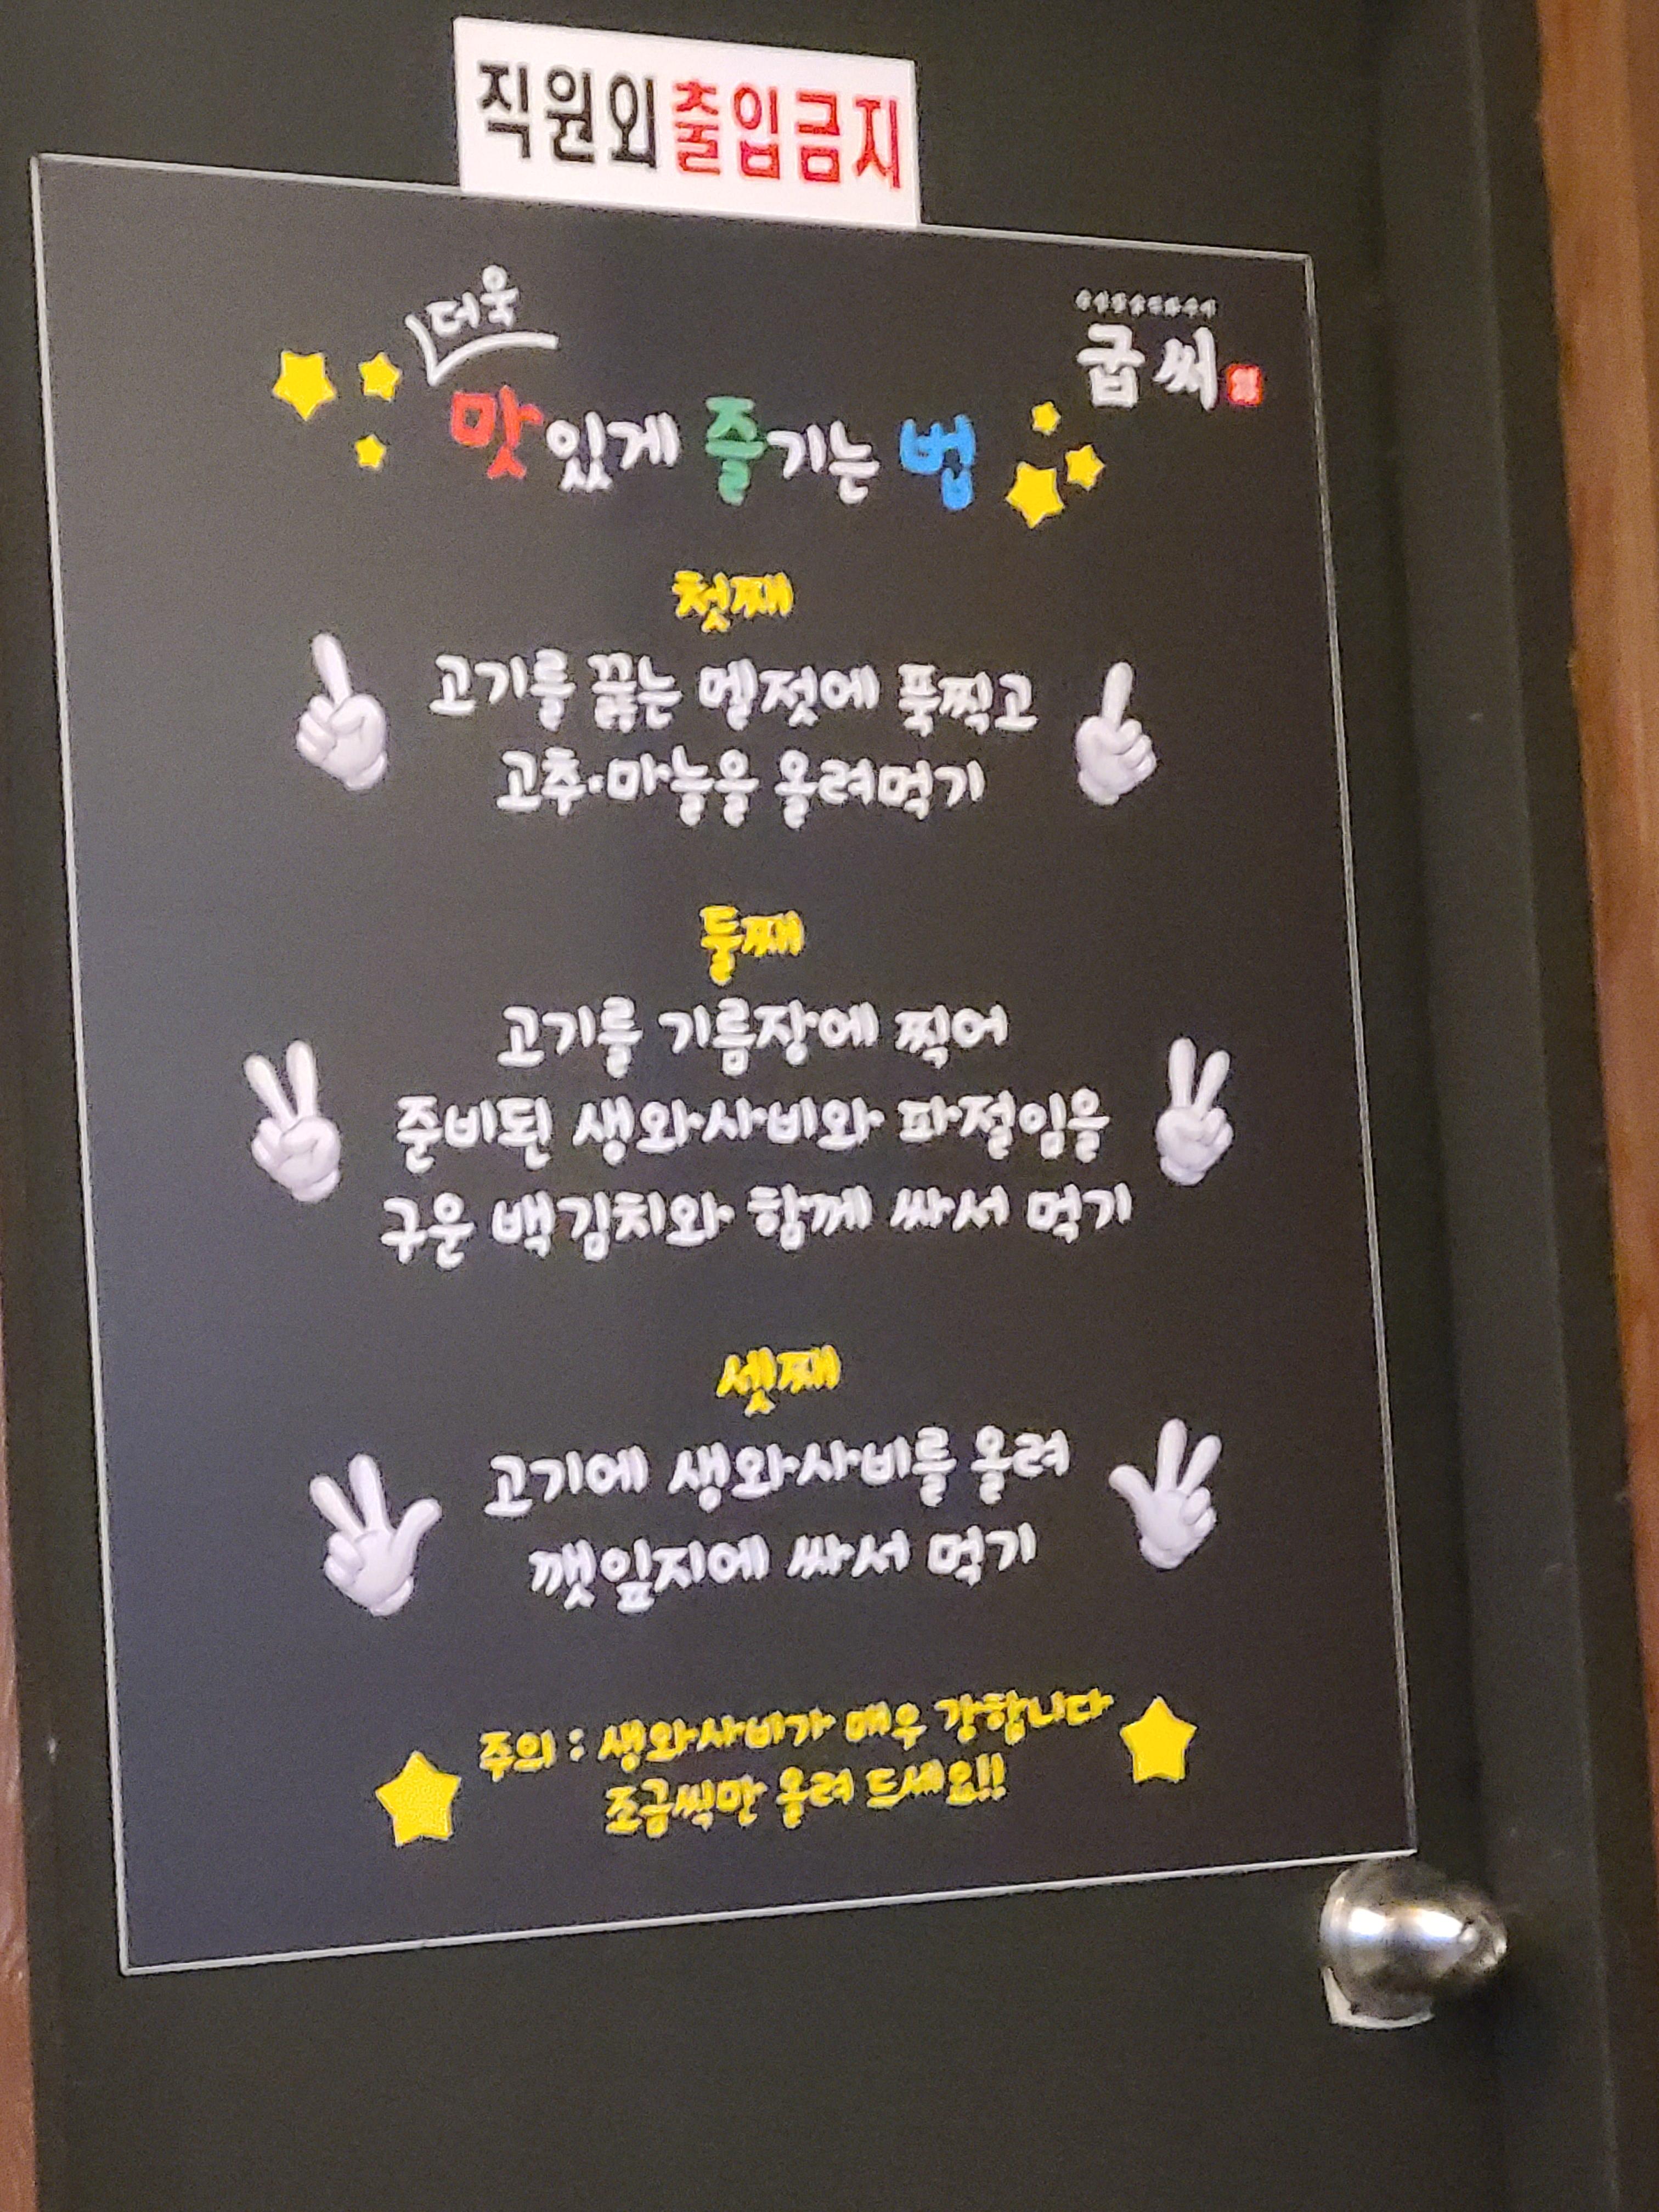 직원외출입금지
더욱
굽씨
맛있게 즐기는 법
첫째
고기를 끓는 멜젓에 푹찍고
고추·마늘을 올려먹기
둘째
고기를 기름장에 찍어
준비된 생와사비와 파절임을
구운 백김치와 함께 싸서 먹기
셋째
고기에 생와사비를 올려
깻잎지에 싸서 먹기
주의 : 생와사비가 매우 강합니다
조금씩만 올려 드세요!!